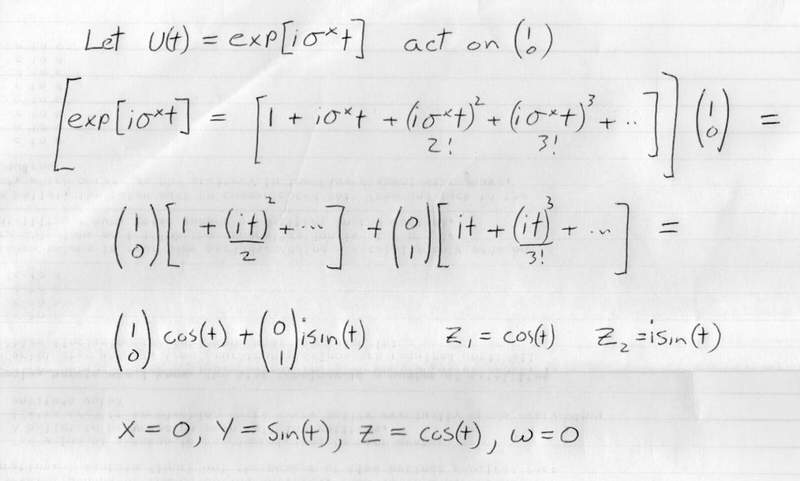 Let U(t) = exp[iσˣt] act on (1 0)
[exp[iσˣt] = [1 + iσˣt + (iσˣt)²/2! + (iσˣt)³/3! + ..]] (1 0) =
(1 0)[1 + (it)²/2 + ...] + (0 1)[it + (it)³/3! + ...] =
(1 0) cos(t) + (0 1) i sin(t) Z₁ = cos(t) Z₂ = i sin(t)
X = 0, Y = Sin(t), Z = cos(t), ω = 0